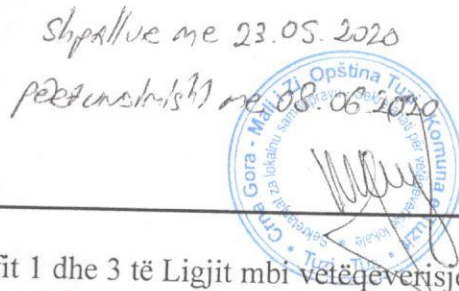 shpallue me 23.05.2020
me 08.06.2020
Crna Gora - Mali i Zi Opština Tuzi Komuna e Tuzit
Sekretarijat za lokalnu samoupravu Sekretariati për vetëqeverisje lokale
Tuzi - Tuz
fit 1 dhe 3 të Ligjit mbi vetëqeverisje